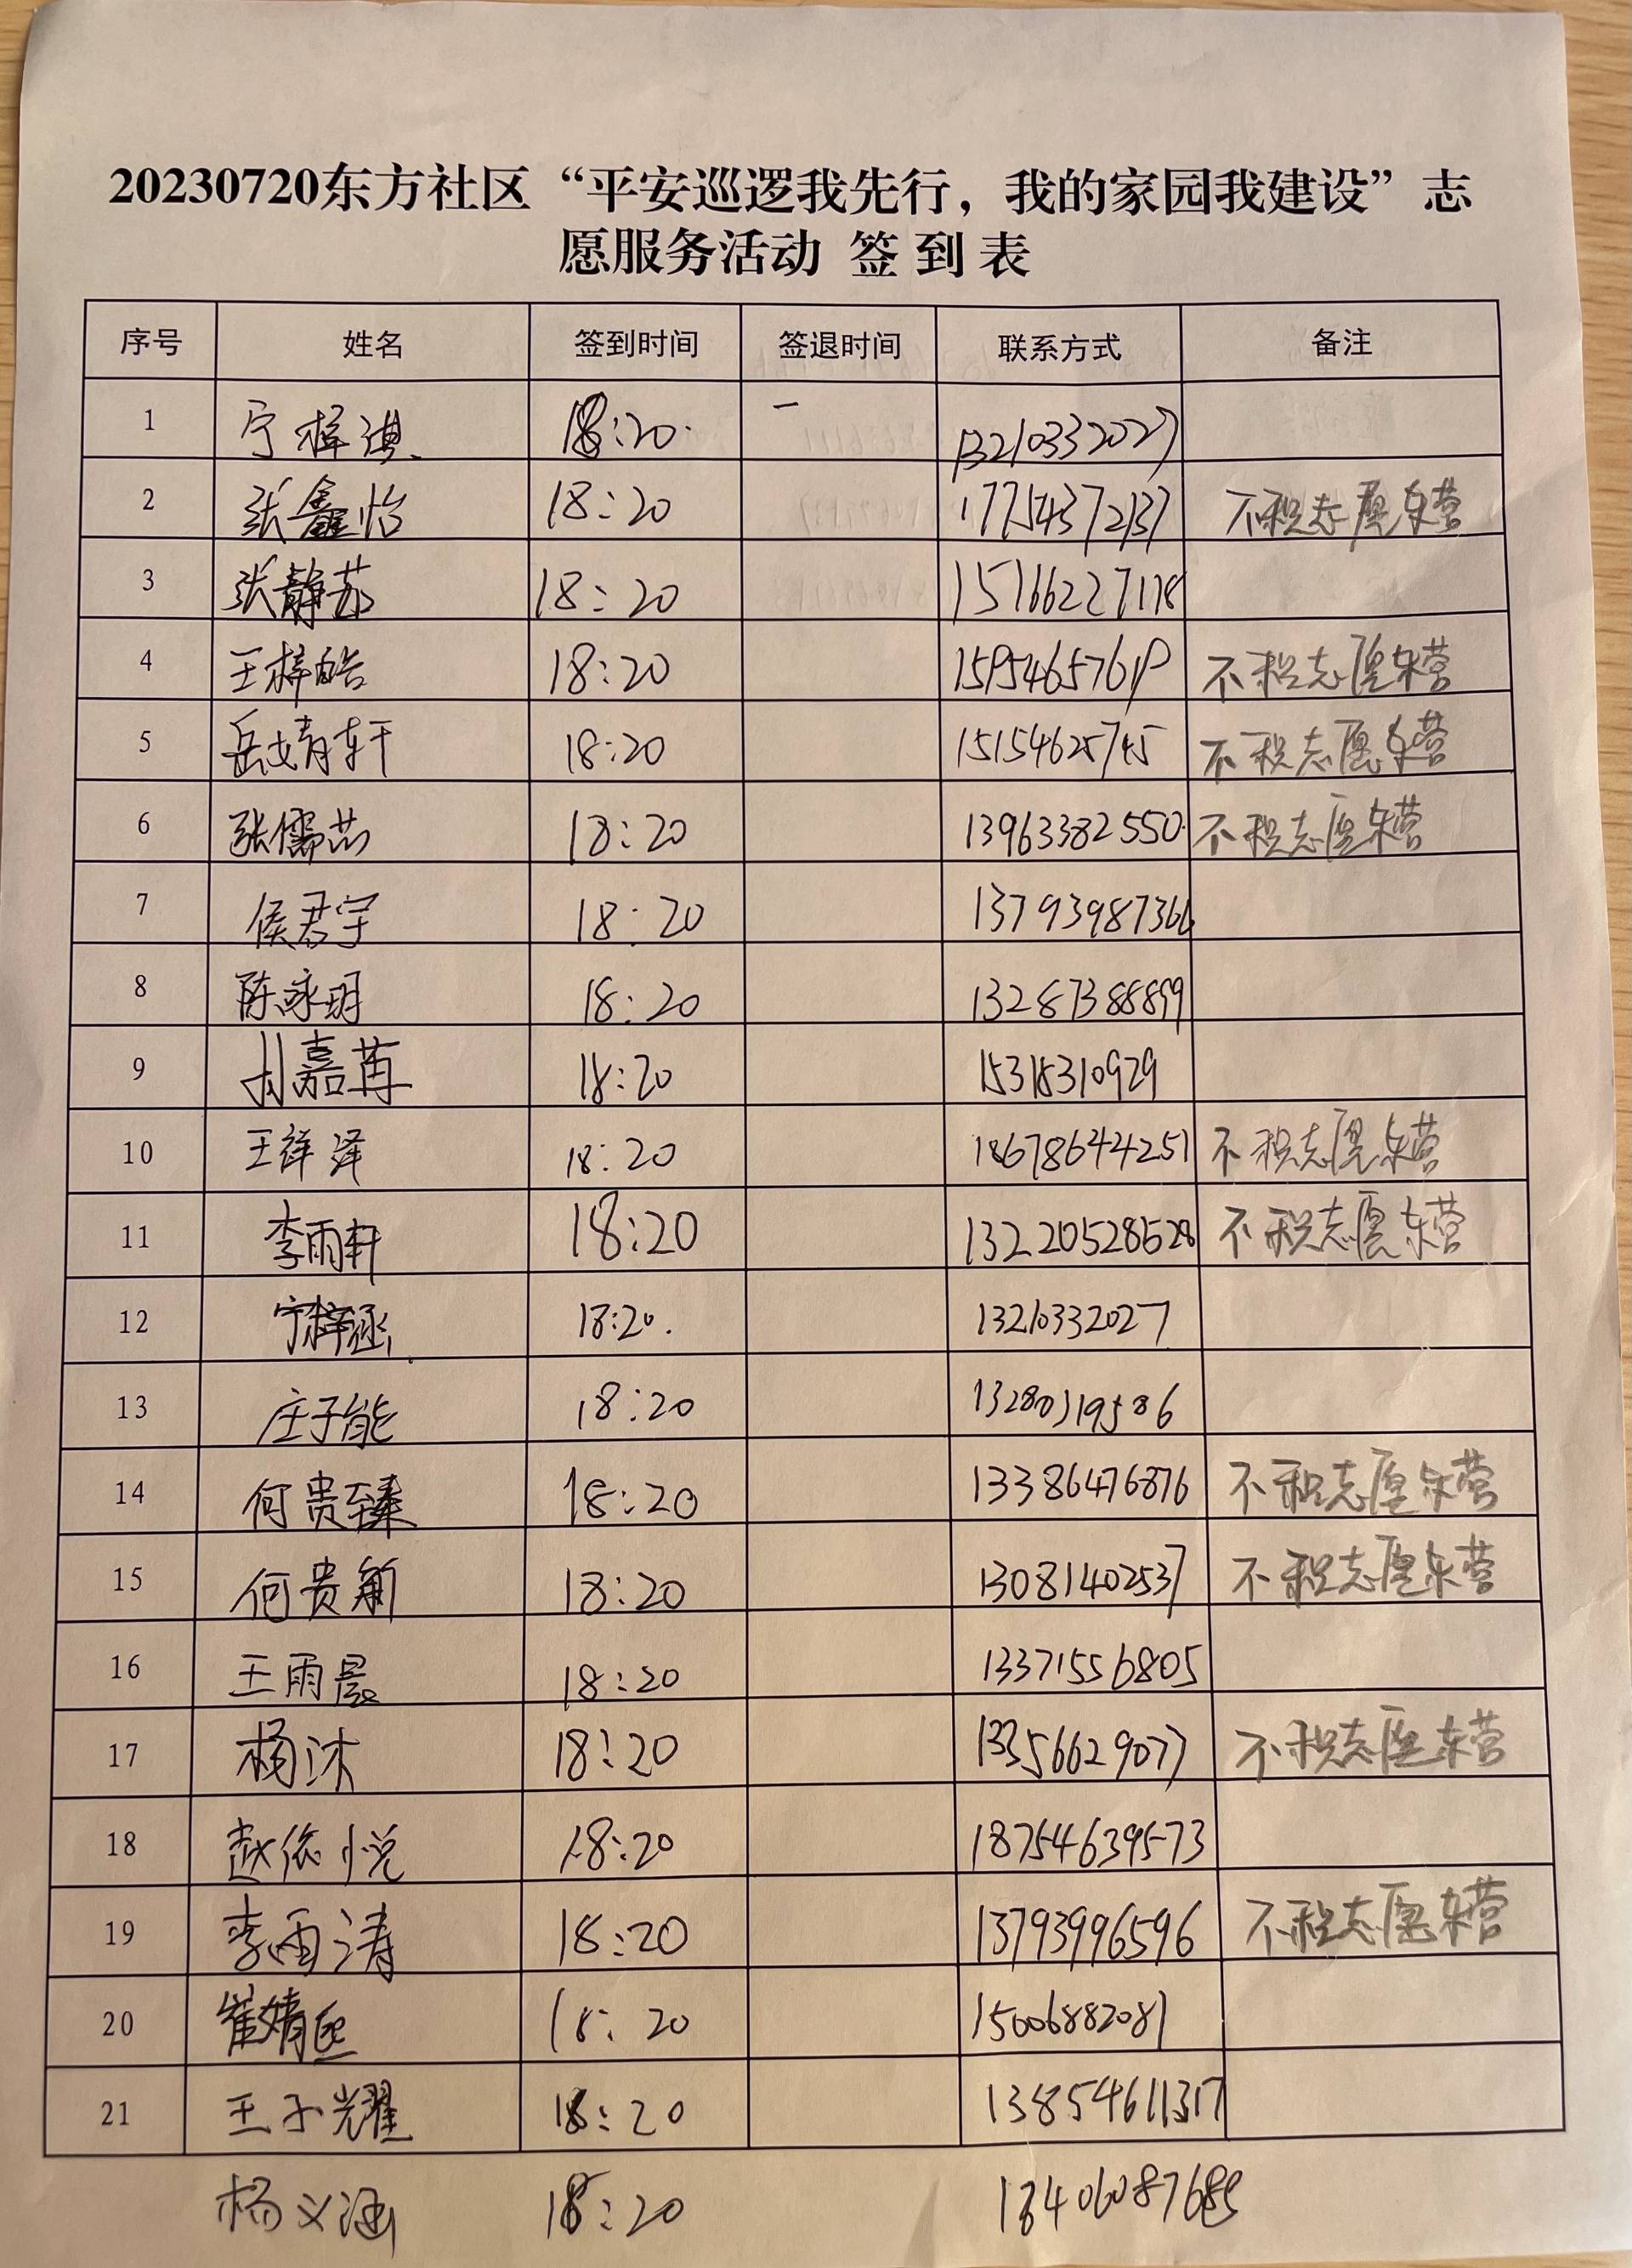 20230720东方社区“平安巡逻我先行，我的家园我建设”志
愿服务活动 签到表
序号 姓名 签到时间 签退时间 联系方式 备注
1 宁梓淇 18:20 13210332027
2 张鑫怡 18:20 17754372137 不积志愿东营
3 张静苏 18:20 15166227118
4 王梓皓 18:20 不积志愿东营
5 岳婧轩 18:20 15154625745 不积志愿东营
6 张儒芯 18:20 13963382550 不积志愿东营
7 侯君宇 18:20 13793987366
8 陈泳玥 18:20 13287388899
9 18:20 15315310929
10 王祥泽 18:20 18678644251 不积志愿东营
11 李雨轩 18:20 不积志愿东营
12 宁梓涵 18:20 13210332027
13 庄子能 18:20 13280319586
14 何贵臻 18:20 13386476876 不积志愿东营
15 何贵 18:20 13081402537 不积志愿东营
16 王雨晨 18:20 13371556805
17 杨沐 18:20 13356629077 不积志愿东营
18 赵依悦 18:20 18754639573
19 李雨涛 18:20 13793996596 不积志愿东营
20 崔婧熙 18:20 15006882081
21 王子耀 18:20 13854611317
杨义涵 18:20